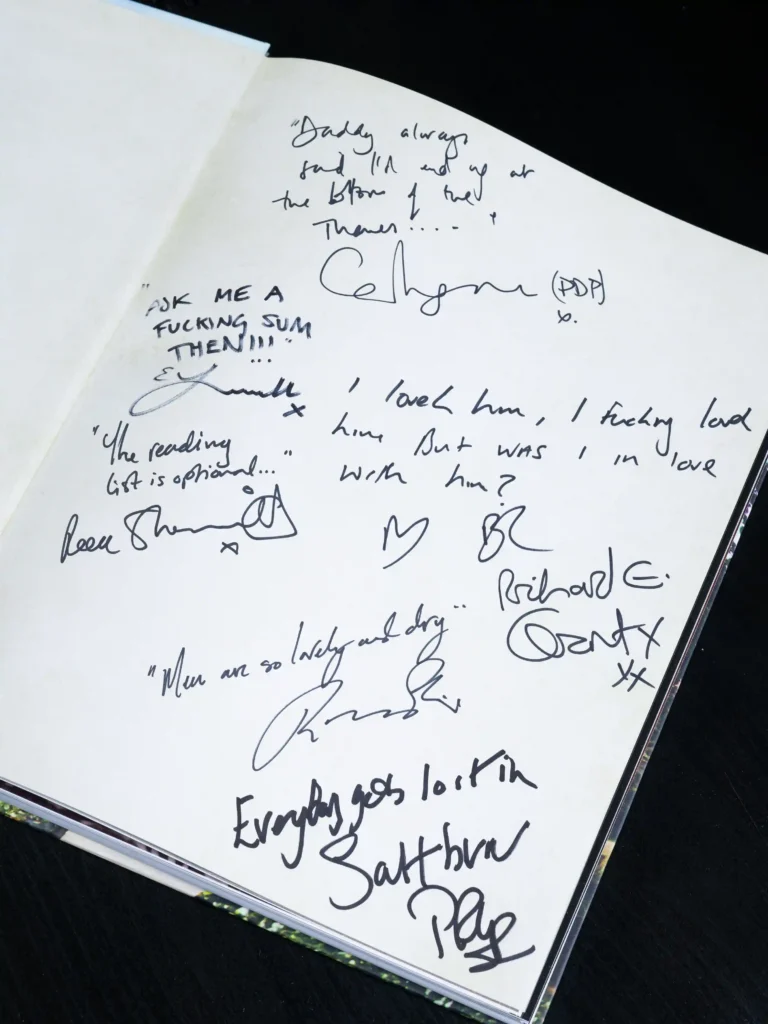 "Daddy always
said I'd end up at
the bottom of the
Thames....."
(PDP)
x.
"ASK ME A
FUCKING SUM
THEN!!!"
...
x
I loved him, I fucking loved
him. But was I in love
with him?
"The reading
list is optional..."
Reece Shearsmith
x
Richard E.
Grant x
xx
"Men are so lovely and dry"
Everybody gets lost in
Saltburn